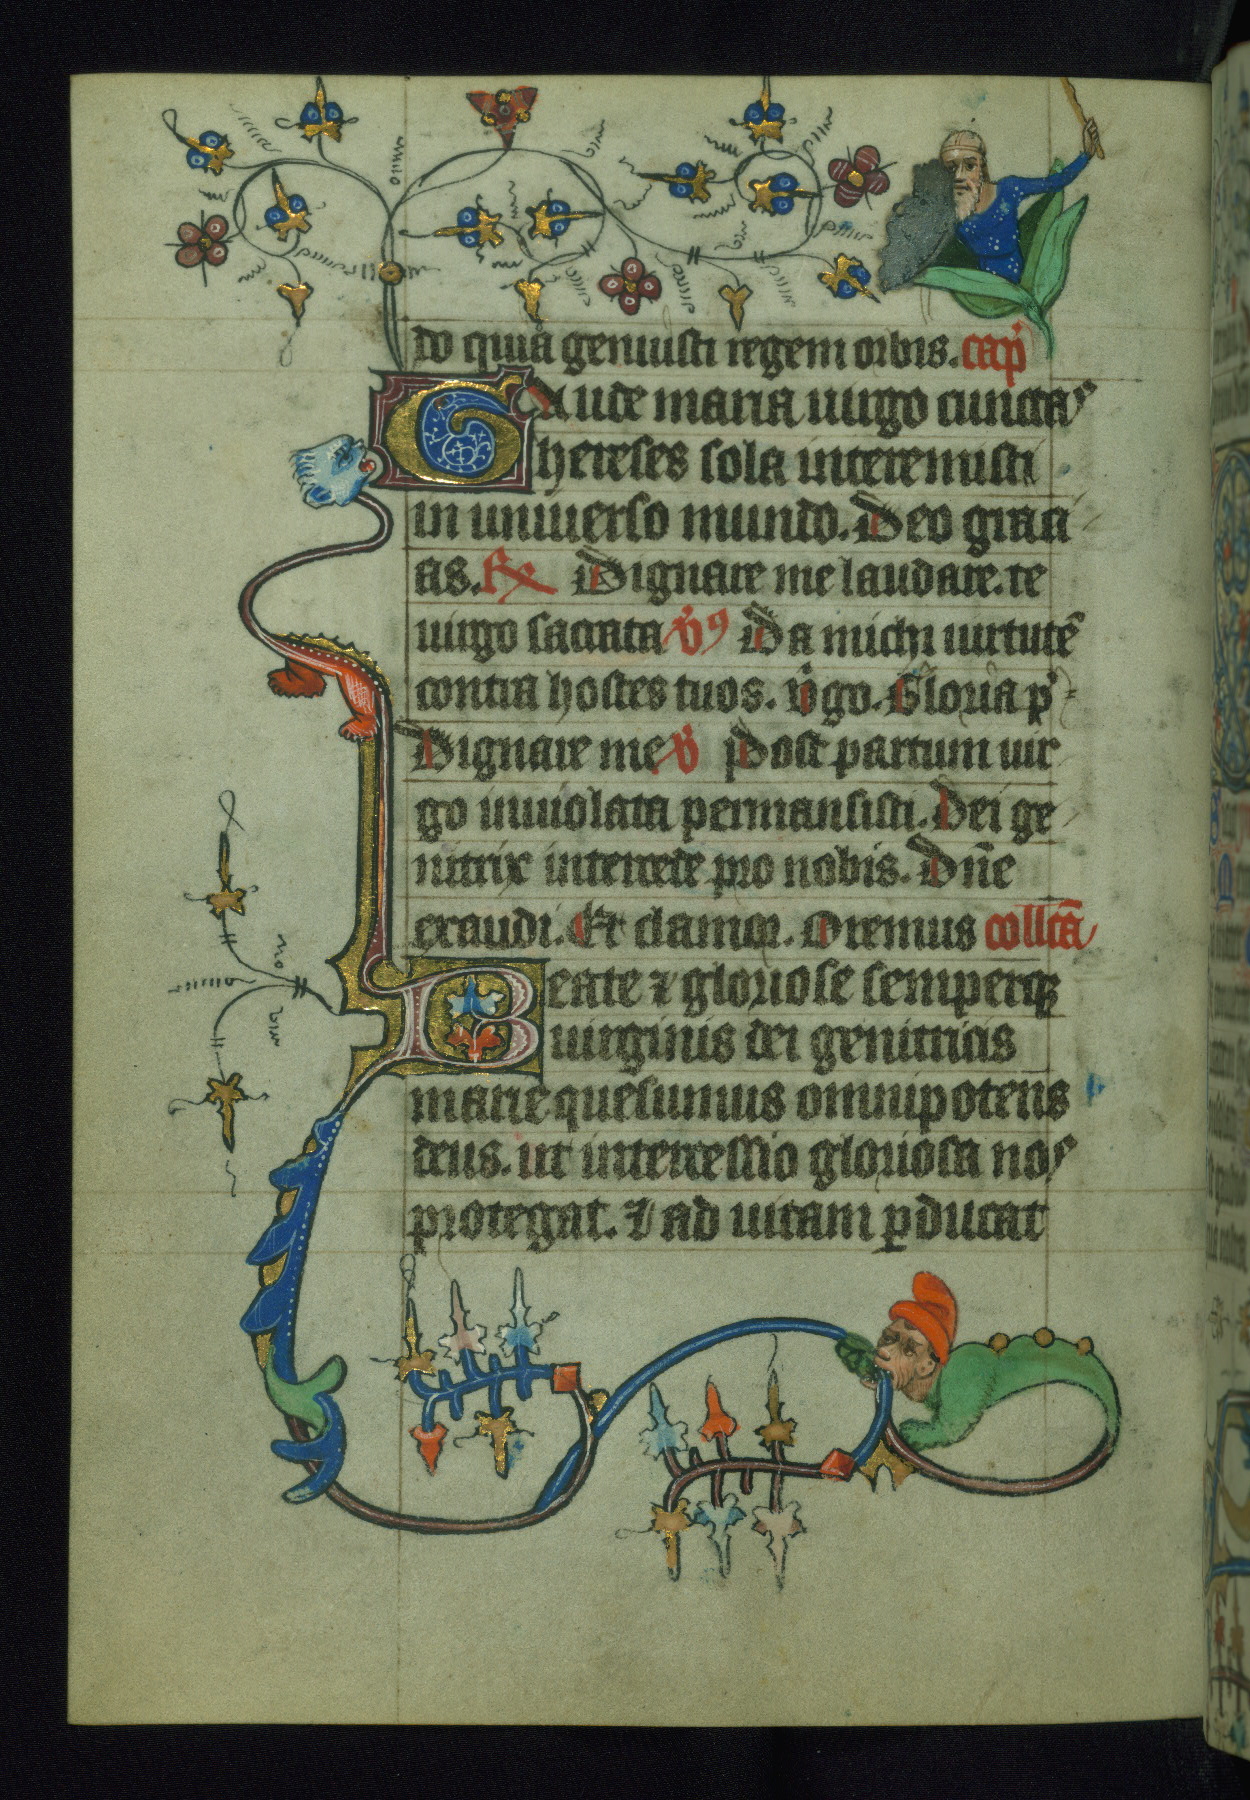 do quia genuisti regem orbis. cap̕
Gaude maria uirgo cunctas
hereses sola interemisti
in uniuerso mundo. Deo graci
as. R̸x Dignare me laudare. te
uirgo sacrata v̕9 Da michi uirtutē
contra hostes tuos. v̕go. Glōria p̕
Dignare me v̕ Post partum uir
go inuiolata permansisti. Dei ge
nitrix intercede pro nobis. Dn̄e
exaudi. Et clamor. Oremus collcā
Beate ⁊ gloriose semperqꝫ
uirginis dei genitricis
marie quesumus omnipotens
deus. ut intercessio gloriosa nos
protegat. ⁊ ad uitam ꝑducat